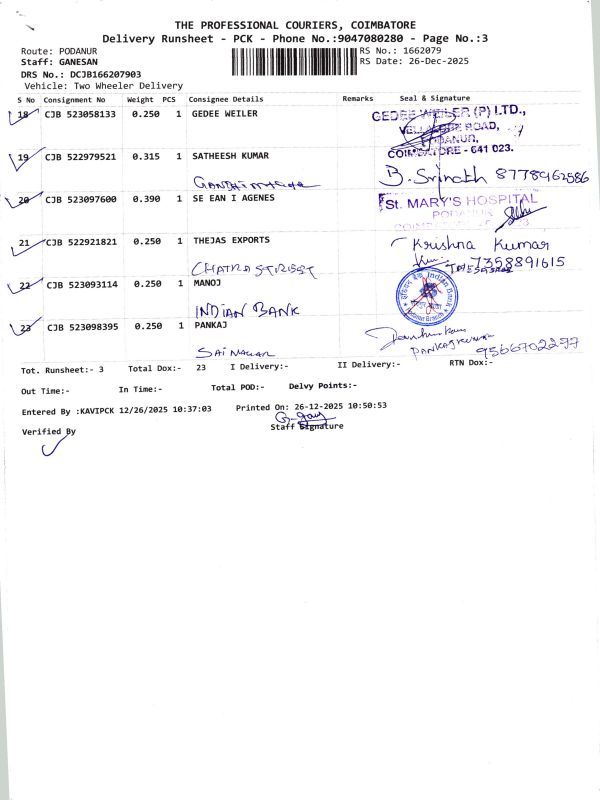 THE PROFESSIONAL COURIERS, COIMBATORE
Delivery Runsheet - PCK - Phone No.:9047080280 - Page No.:3
Route: PODANUR
RS No.: 1662079
Staff: GANESAN
RS Date: 26-Dec-2025
DRS No.: DCJB166207903
Vehicle: Two Wheeler Delivery
S No Consignment No Weight PCS Consignee Details Remarks Seal & Signature
18 CJB 523058133 0.250 1 GEDEE WEILER
GEDEE WEILER (P) LTD.,
ROAD,
PODANUR,
COIMBATORE - 641 023.
19 CJB 522979521 0.315 1 SATHEESH KUMAR
B. Srinath 8778962586
20 CJB 523097600 0.390 1 SE EAN I AGENES
St. MARY'S HOSPITAL
PODANUR
21 CJB 522921821 0.250 1 THEJAS EXPORTS
Krishna Kumar
7358891615
CHATRA STREET
22 CJB 523093114 0.250 1 MANOJ
INDIAN BANK
Indian Bank
23 CJB 523098395 0.250 1 PANKAJ
PANKAJ KUMAR 9566702277
SAI NAGAR
Tot. Runsheet:- 3 Total Dox:- 23 I Delivery:- II Delivery:- RTN Dox:-
Out Time:- In Time:- Total POD:- Delvy Points:-
Entered By :KAVIPCK 12/26/2025 10:37:03 Printed On: 26-12-2025 10:50:53
Verified By
Staff Signature